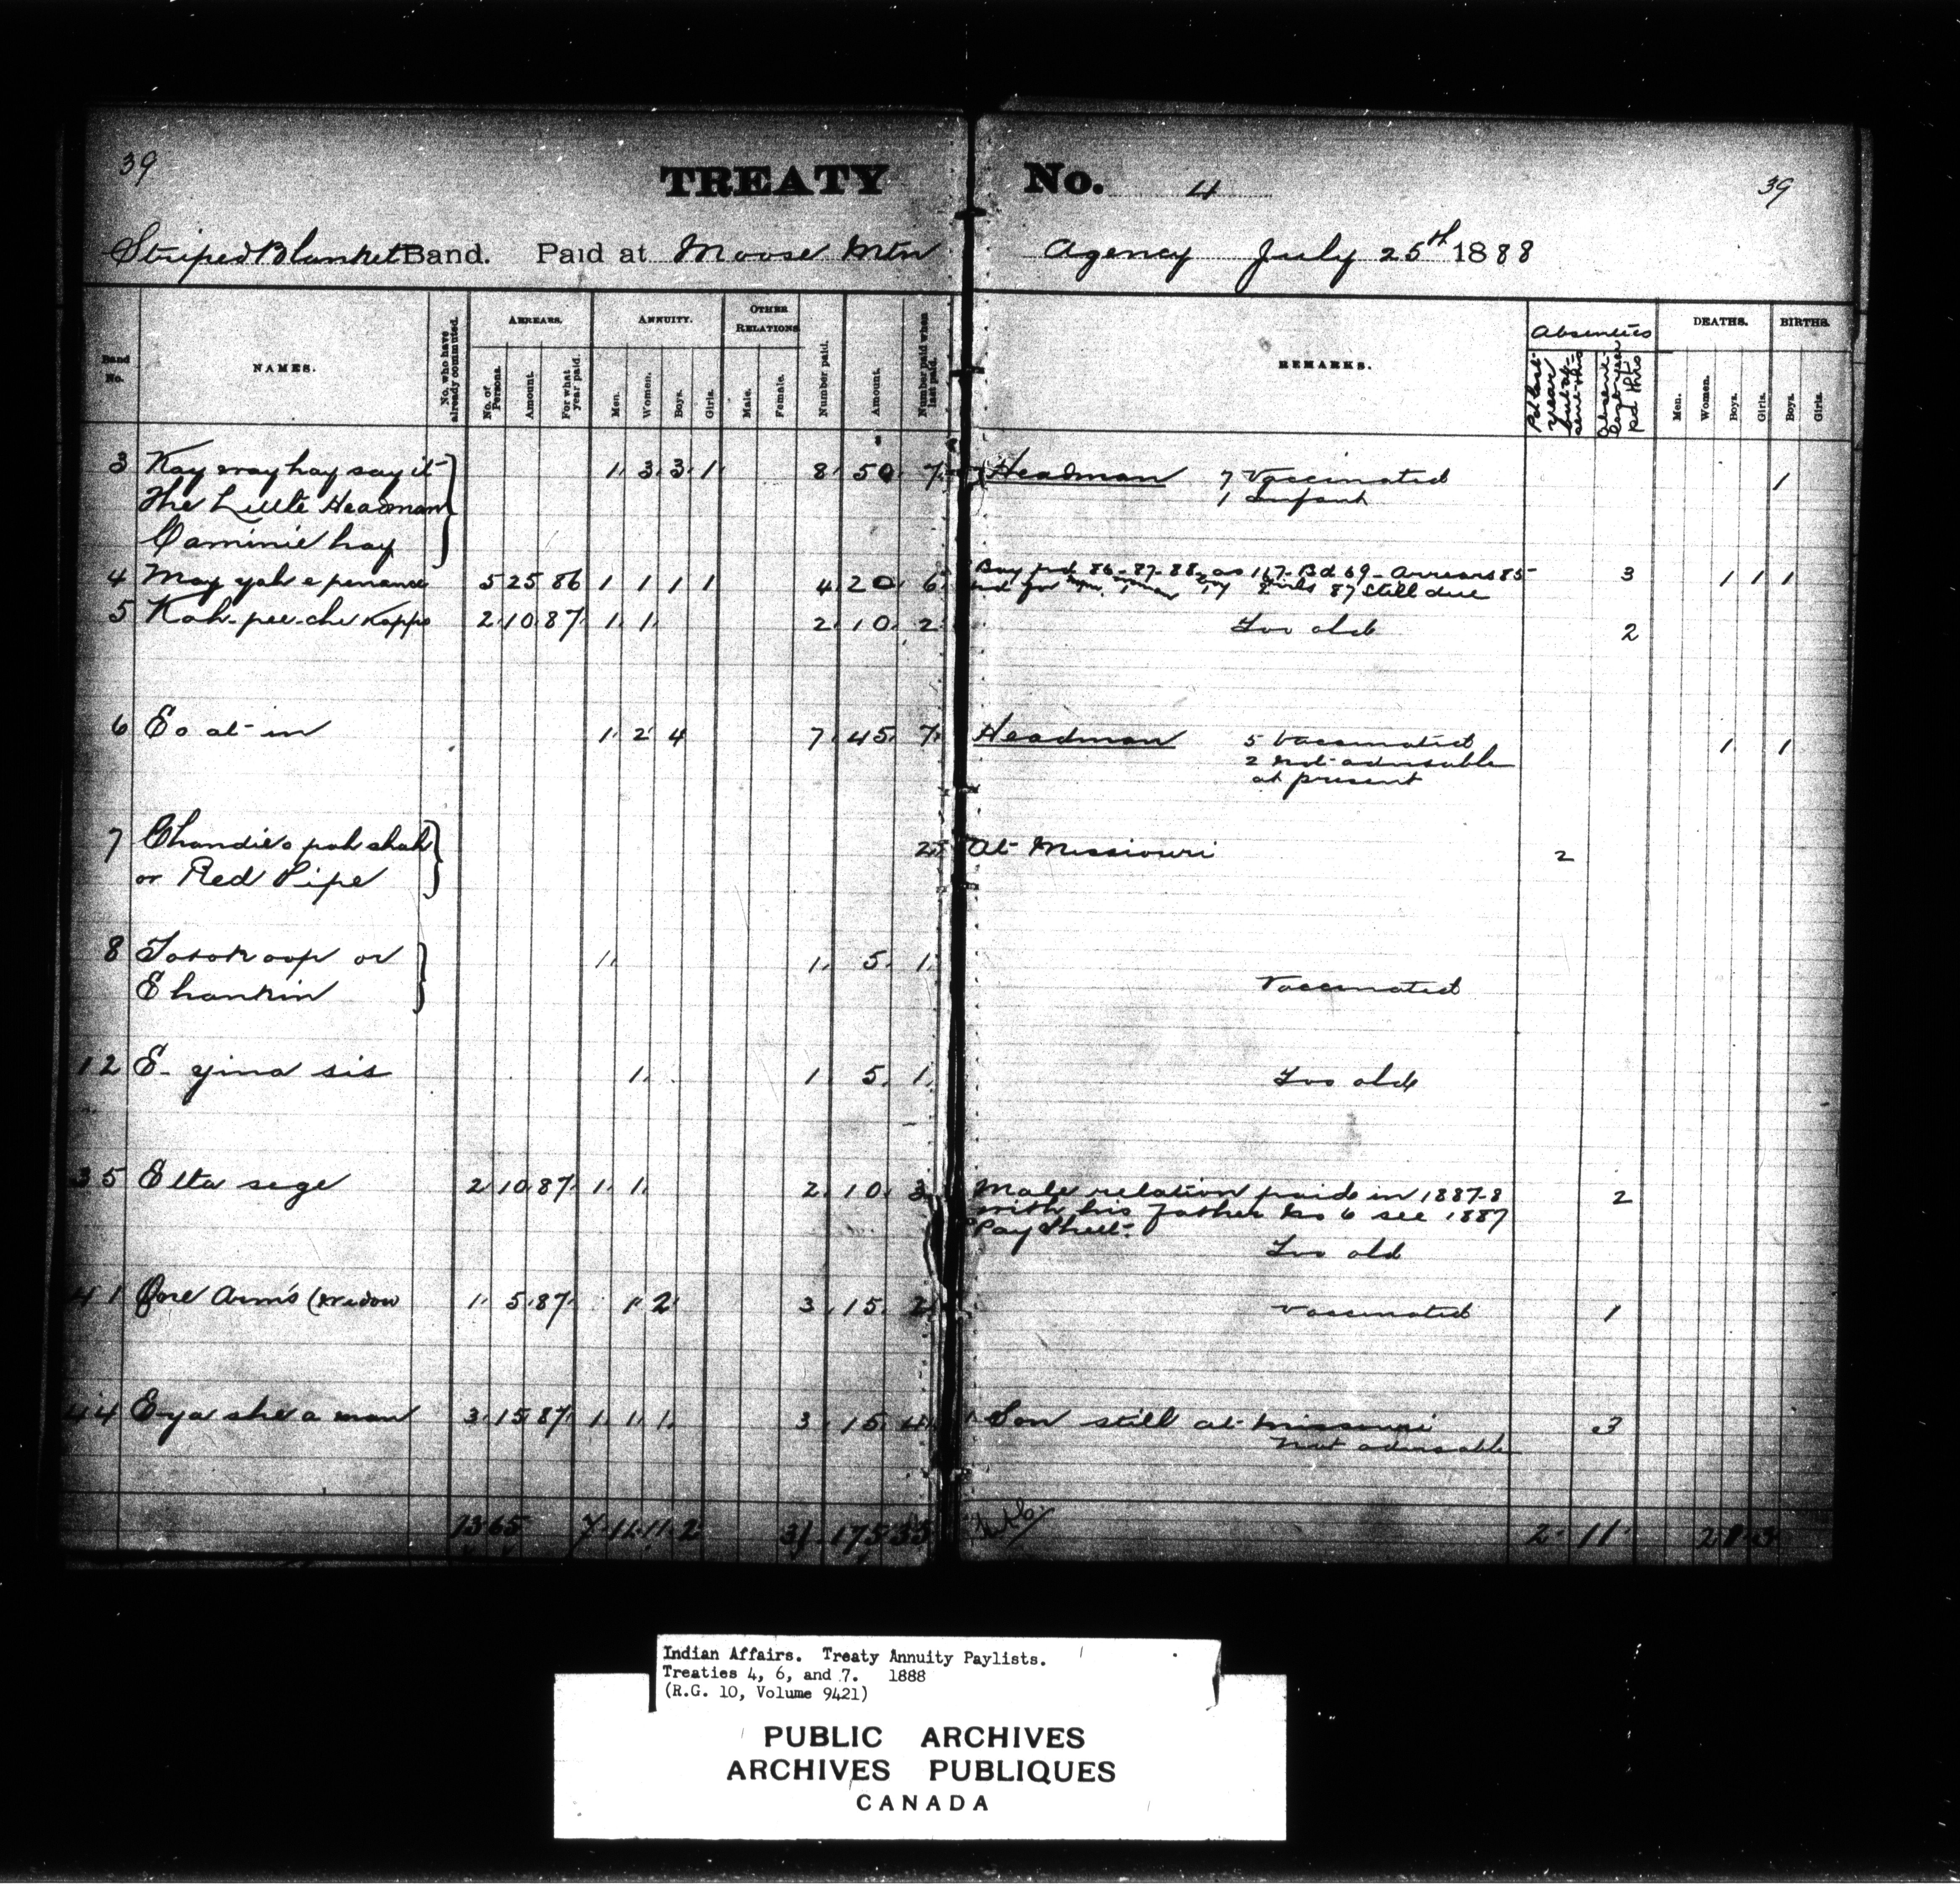 39
TREATY No. 4
39
Striped Blanket Band. Paid at Moose Mtn Agency July 25th 1888
Band No. NAMES. No. who have already commuted. ARREARS. No. of Persons. Amount. For what year paid. ANNUITY. Men. Women. Boys. Girls. OTHER RELATIONS Male. Female. Number paid. Amount. Number paid when last paid. REMARKS. Absentees DEATHS. Men. Women. Boys. Girls. BIRTHS. Boys. Girls.
3 Kay way hay say it 1 3 3 1 8 50 7 Headman 7 Vaccinated 1
The Little Headman 1 Infant
Caminie hay
4 May yah e penance 5 25 86 1 1 1 1 4 20 6 Boy pd 86-87-88 as 117 Bd 69 - Arrears 85 3 1 1 1
87 still due
5 Kah-pee-che Kappo 2 10 87 1 1 2 10 2 Too old 2
6 Eo at in 1 2 4 7 45 7 Headman 5 Vaccinated 1 1
2 not advisable
at present
7 Chandie o pah shah 2 At Missiouri 2
or Red Pipe
8 Tosokoop or 1 1 5 1
Ehankin Vaccinated
12 E- yina sis 1 1 5 1 Too old
35 Etta sege 2 10 87 1 1 2 10 3 Male relation paid in 1887-8 2
with his father No 6 see 1887
Pay Sheet.
Too old
41 One Arm's (widow 1 5 87 1 2 3 15 2 Vaccinated 1
44 Eya she a man 3 15 87 1 1 1 3 15 4 1 Son still at Missouri 3
not advisable
13 65 7 11 11 2 31 175 33 2 11 2
Indian Affairs. Treaty Annuity Paylists.
Treaties 4, 6, and 7. 1888
(R.G. 10, Volume 9421)
PUBLIC ARCHIVES
ARCHIVES PUBLIQUES
CANADA